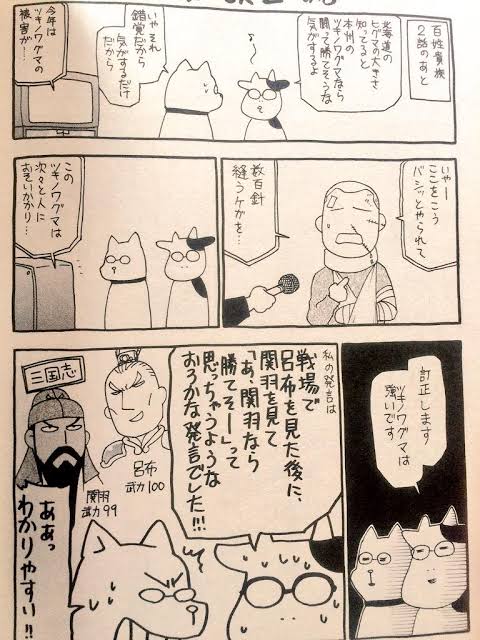 百姓貴族
2話のあと
北海道の
ヒグマの大きさ
知ってると
本州の
ツキノワグマなら
闘って勝てそうな
気がするよ
いや それ
錯覚だから
気がするだけ
だから
今年は
ツキノワグマの
被害が…
いやー
ここをこう
バシッとやられて
数百針
縫うケガを…
この
ツキノワグマは
次々と人に
おそいかかり…
訂正します
ツキノワグマは
強いです
私の発言は
戦場で
呂布を見た後に、
関羽を見て
「あ、関羽なら
勝てそー」って
思っちゃうような
おろかな発言でした!!!
三国志
呂布
武力100
関羽
武力99
ああっ
わかりやすい!!